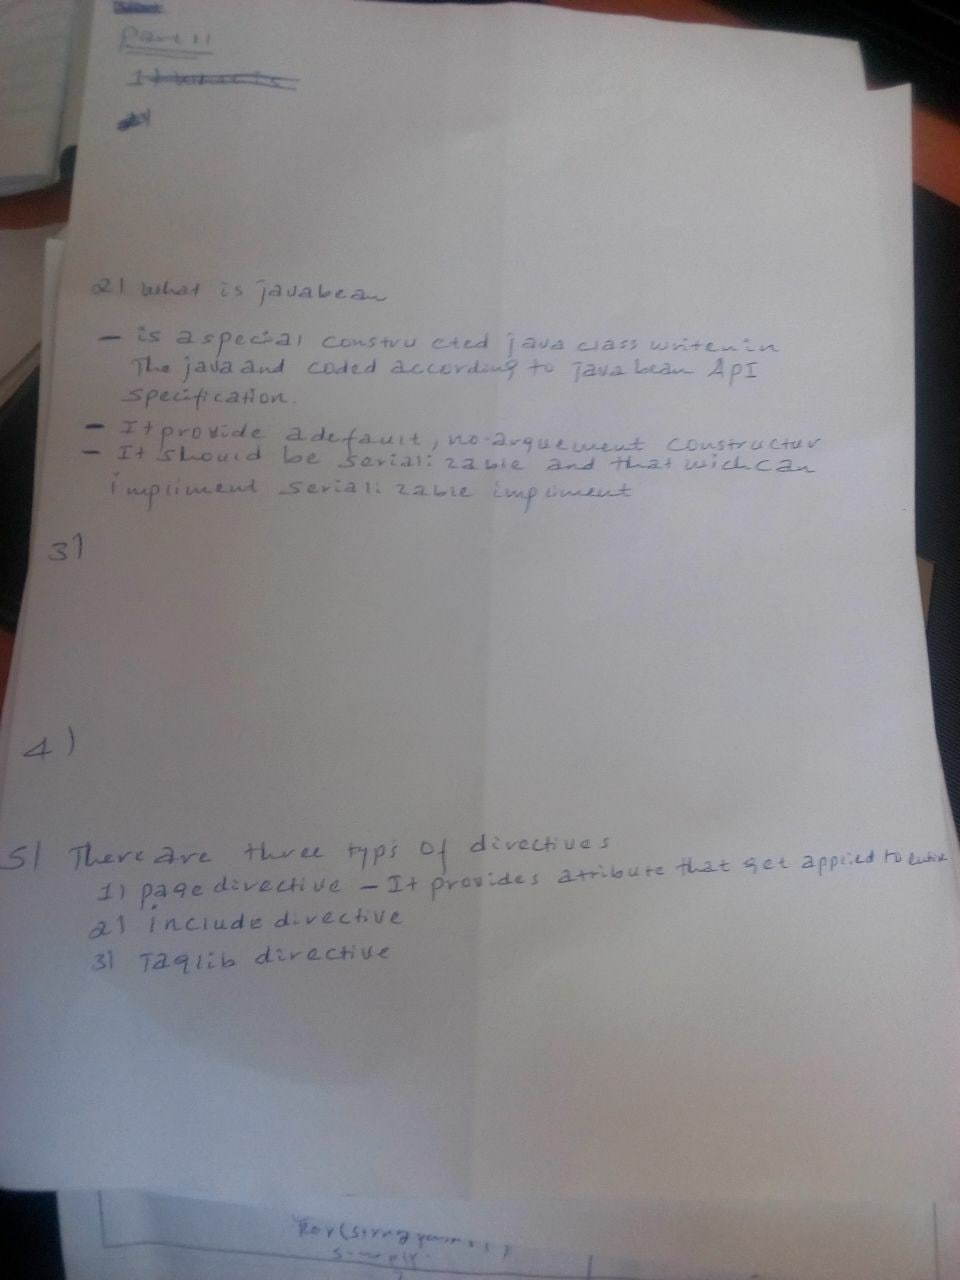 Part II
1) What is
2) What is javabean
- is a special constructed java class writen in
The java and coded according to Java bean API
specification.
- It provide a default, no-arguement constructur
- It should be serializable and that wich can
impliment serializable impliment
3)
4)
5) There are three typs of directives
1) page directive - It provides atribute that get applied to entire
2) include directive
3) Taglib directive